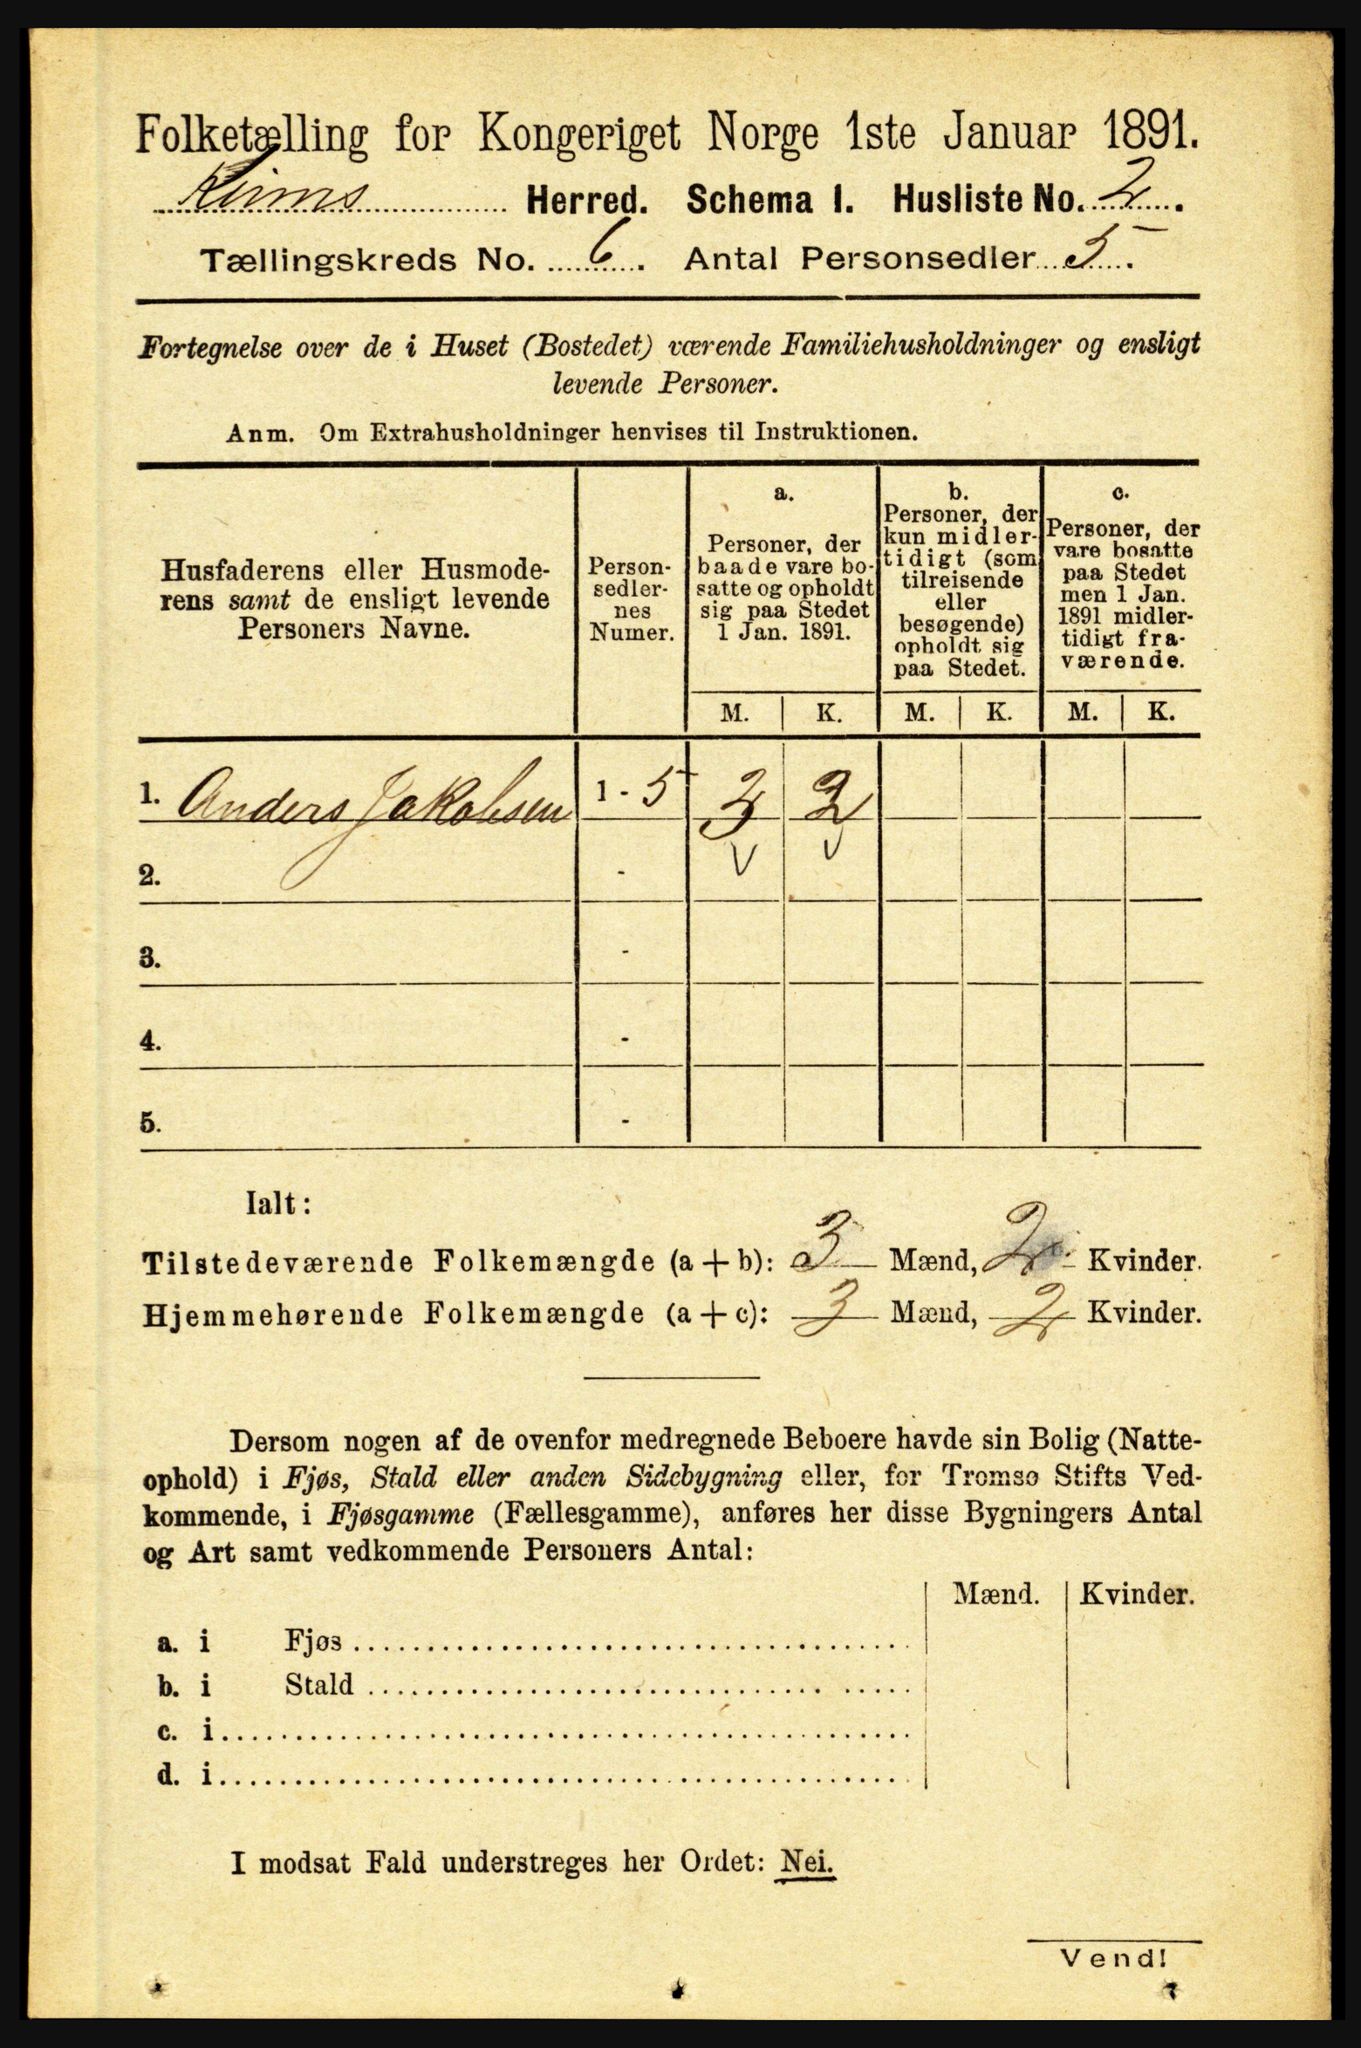 Folketælling for Kongeriget Norge 1ste Januar 1891.
Kinns Herred. Schema I. Husliste No. 2.
Tællingskreds No. 6. Antal Personsedler 5.
Fortegnelse over de i Huset (Bostedet) værende Familiehusholdninger og ensligt
levende Personer.
Anm. Om Extrahusholdninger henvises til Instruktionen.
Husfaderens eller Husmode-
rens samt de ensligt levende
Personers Navne.
Person-
sedler-
nes
Numer.
a.
Personer, der
baade vare bo-
satte og opholdt
sig paa Stedet
1 Jan. 1891.
b.
Personer, der
kun midler-
tidigt (som
tilreisende
eller
besøgende)
opholdt sig
paa Stedet.
c.
Personer, der
vare bosatte
paa Stedet
men 1 Jan.
1891 midler-
tidigt fra-
værende.
M. K. M. K. M. K.
1. Anders Jakobsen 1 - 5 3 2
2. -
3. -
4. -
5. -
Ialt:
Tilstedeværende Folkemængde (a + b): 3 Mænd, 2 Kvinder.
Hjemmehørende Folkemængde (a + c): 3 Mænd, 2 Kvinder.
Dersom nogen af de ovenfor medregnede Beboere havde sin Bolig (Natte-
ophold) i Fjøs, Stald eller anden Sidebygning eller, for Tromsø Stifts Ved-
kommende, i Fjøsgamme (Fællesgamme), anføres her disse Bygningers Antal
og Art samt vedkommende Personers Antal:
Mænd. Kvinder.
a. i Fjøs
b. i Stald
c. i
d. i
I modsat Fald understreges her Ordet: Nei.
Vend!